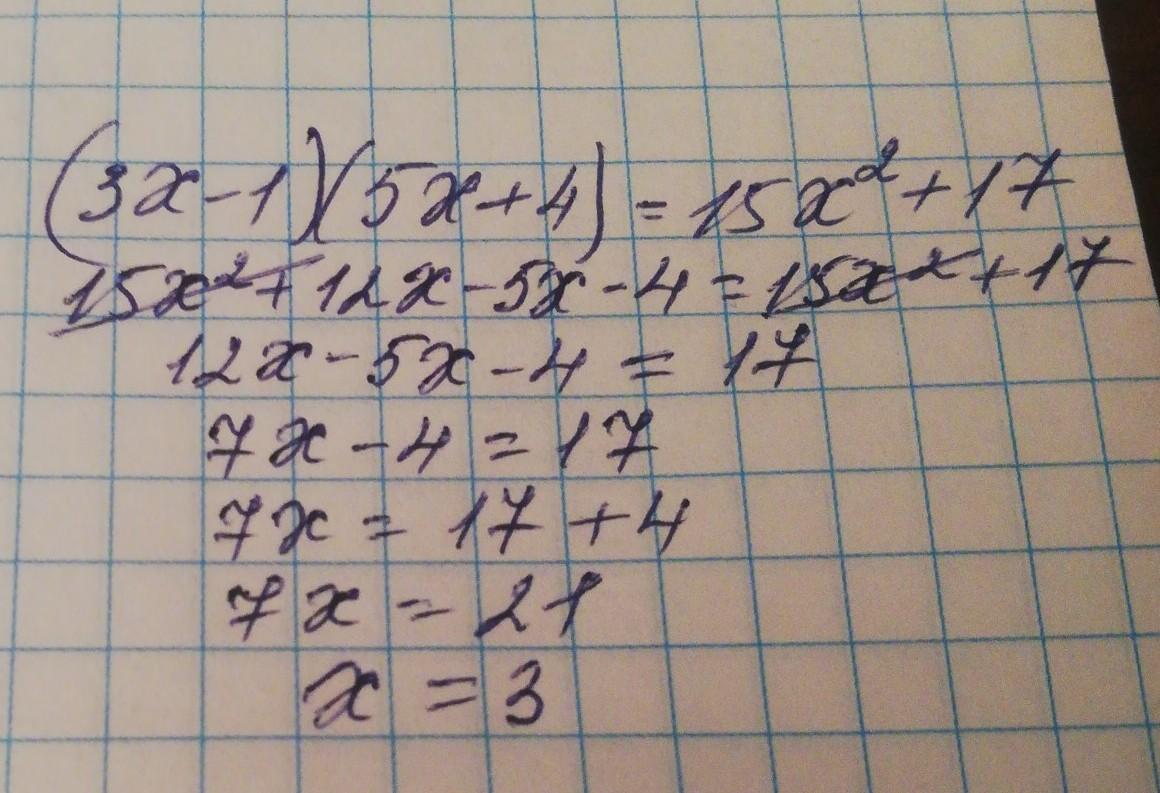 (3x-1)(5x+4)=15x²+17
15x²+12x-5x-4=15x²+17
12x-5x-4=17
7x-4=17
7x=17+4
7x=21
x=3